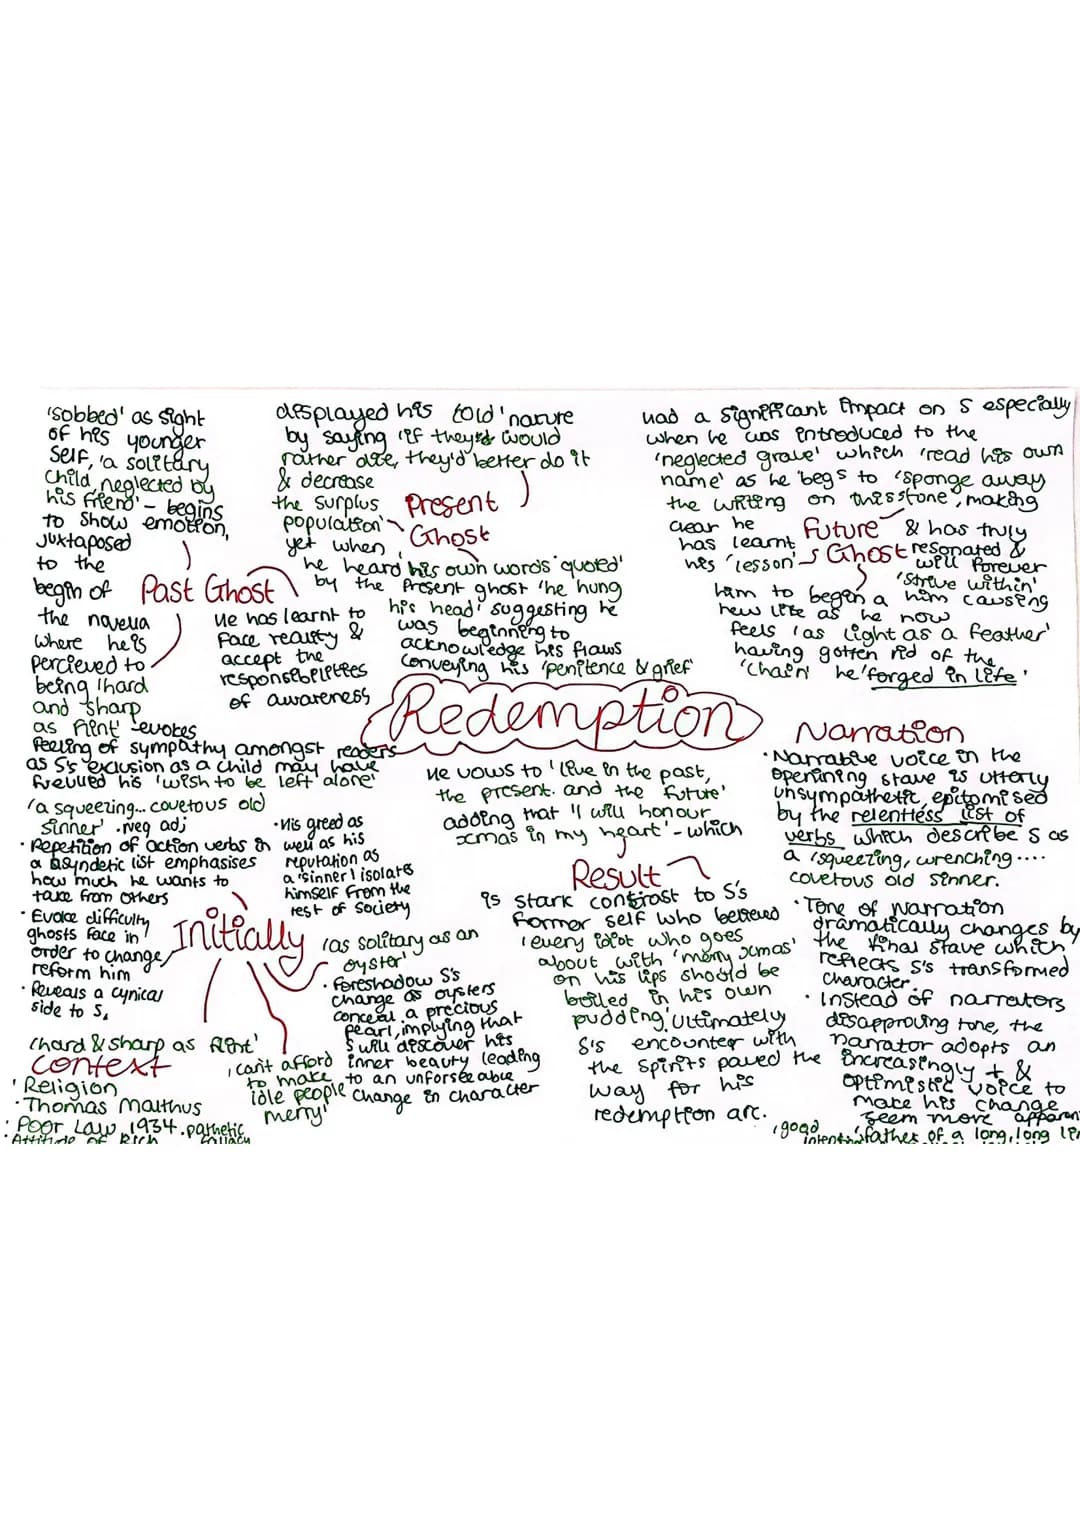 'sobbed' as sight
of his younger
self, 'a solitary
child, neglected by
his friend' - begins
to show emotion,
juxtaposed
to the
begin of
the novella
where he is
percieved to
being 'hard
and sharp
as flint' - evokes
feeling of sympathy amongst readers
as S's exclusion as a child may have
fuelled his 'wish to be left alone'
Past Ghost
He has learnt to
face reality &
accept the
responsibilities
of awareness
displayed his cold 'nature
by saying 'if they'd would
rather die, they'd better do it
& decrease
the surplus
population'
yet when
Present
Ghost
he heard his own words 'quoted'
by the Present ghost 'he hung
his head' suggesting he
was beginning to
acknowledge his flaws
conveying his 'penitence & grief'
had a significant impact on S especially
when he was introduced to the
'neglected grave' which 'read his own
name' as he begs to 'sponge away
the writing on this stone', making
clear he
has learnt
his 'lesson'
Future
Ghost
& has truly
resonated &
will forever
'strive within'
him causing
him to begin a
new life as he now
feels 'as light as a feather'
having gotten rid of the
'chain' he 'forged in life'.
Redemption
He vows to 'live in the past,
the present. and the future'
adding that 'I will honour
xmas in my heart' - which
Result
is stark contrast to S's
former self who believed
'every idiot who goes
about with 'merry xmas'
on his lips should be
boiled in his own
pudding'. Ultimately
S's encounter with
the spirits paved the
way for his
redemption arc.
Narration
· Narrative voice in the
openining stave is utterly
unsympathetic, epitomised
by the relentless list of
verbs which describe S as
a 'squeezing, wrenching....
covetous old sinner.
· Tone of narration
dramatically changes by
the final stave which
reflects S's transformed
character.
· Instead of narrators
disapproving tone, the
narrator adopts an
increasingly + &
optimistic voice to
make his change
seem more
'a squeezing... covetous old
sinner' · neg adj
· Repetition of action verbs in
a asyndetic list emphasises
how much he wants to
take from others
· Evoke difficulty
ghosts face in
order to change/
reform him
· Reveals a cynical
side to S.
· His greed as
well as his
reputation as
a 'sinner' isolates
himself from the
rest of society
Initially
'as solitary as an
oyster'
· foreshadow S's
change as oysters
conceal a precious
pearl, implying that
S will discover his
inner beauty leading
to an unforseeable
change in character
'hard & sharp as flint'
'can't afford
to make
idle people
merry'
Context
' Religion
· Thomas Malthus
· Poor Law 1934 · pathetic
fallacy
Attitude of Rich
'good
'father of a long, long